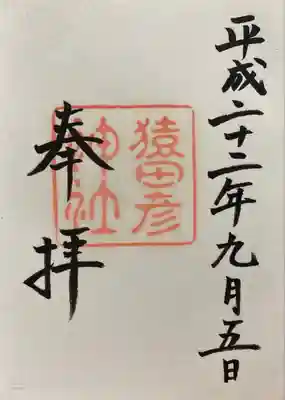 平成二十二年九月五日
奉拝
猿田彦
神社